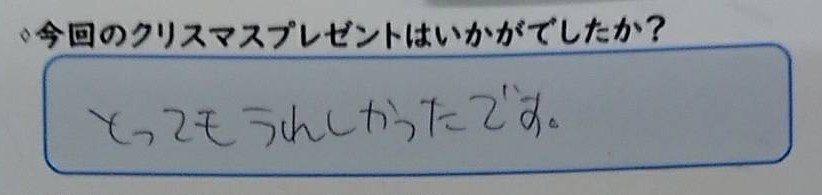 ◇今回のクリスマスプレゼントはいかがでしたか?
とってもうれしかったです。